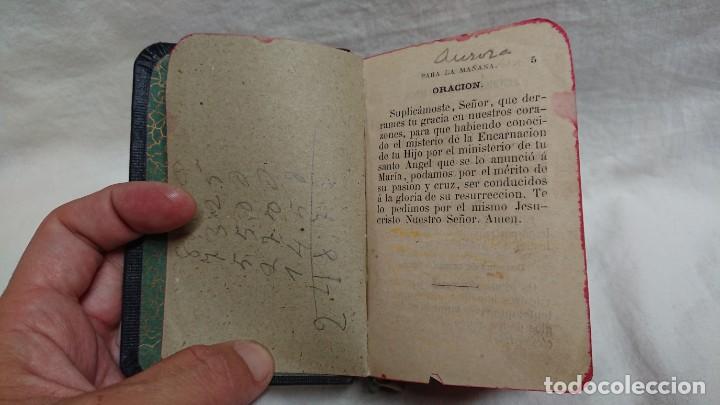 Aurora
PARA LA MAÑANA. 5
ORACION.
Suplicámoste, Señor, que der-
rames tu gracia en nuestros cora-
zones, para que habiendo conoci-
do el misterio de la Encarnacion
de tu Hijo por el ministerio de tu
santo Angel que se lo anunció á
María, podamos por el mérito de
su pasion y cruz, ser conducidos
á la gloria de su resurreccion. Te
lo pedimos por el mismo Jesu-
cristo Nuestro Señor. Amen.
todocoleccion